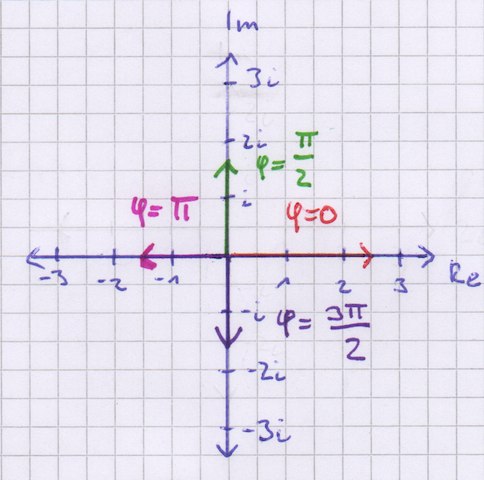 Im
3i
2i
φ=π/2
i
φ=π
φ=0
-3 -2 -1 1 2 3 Re
-i
φ=3π/2
-2i
-3i